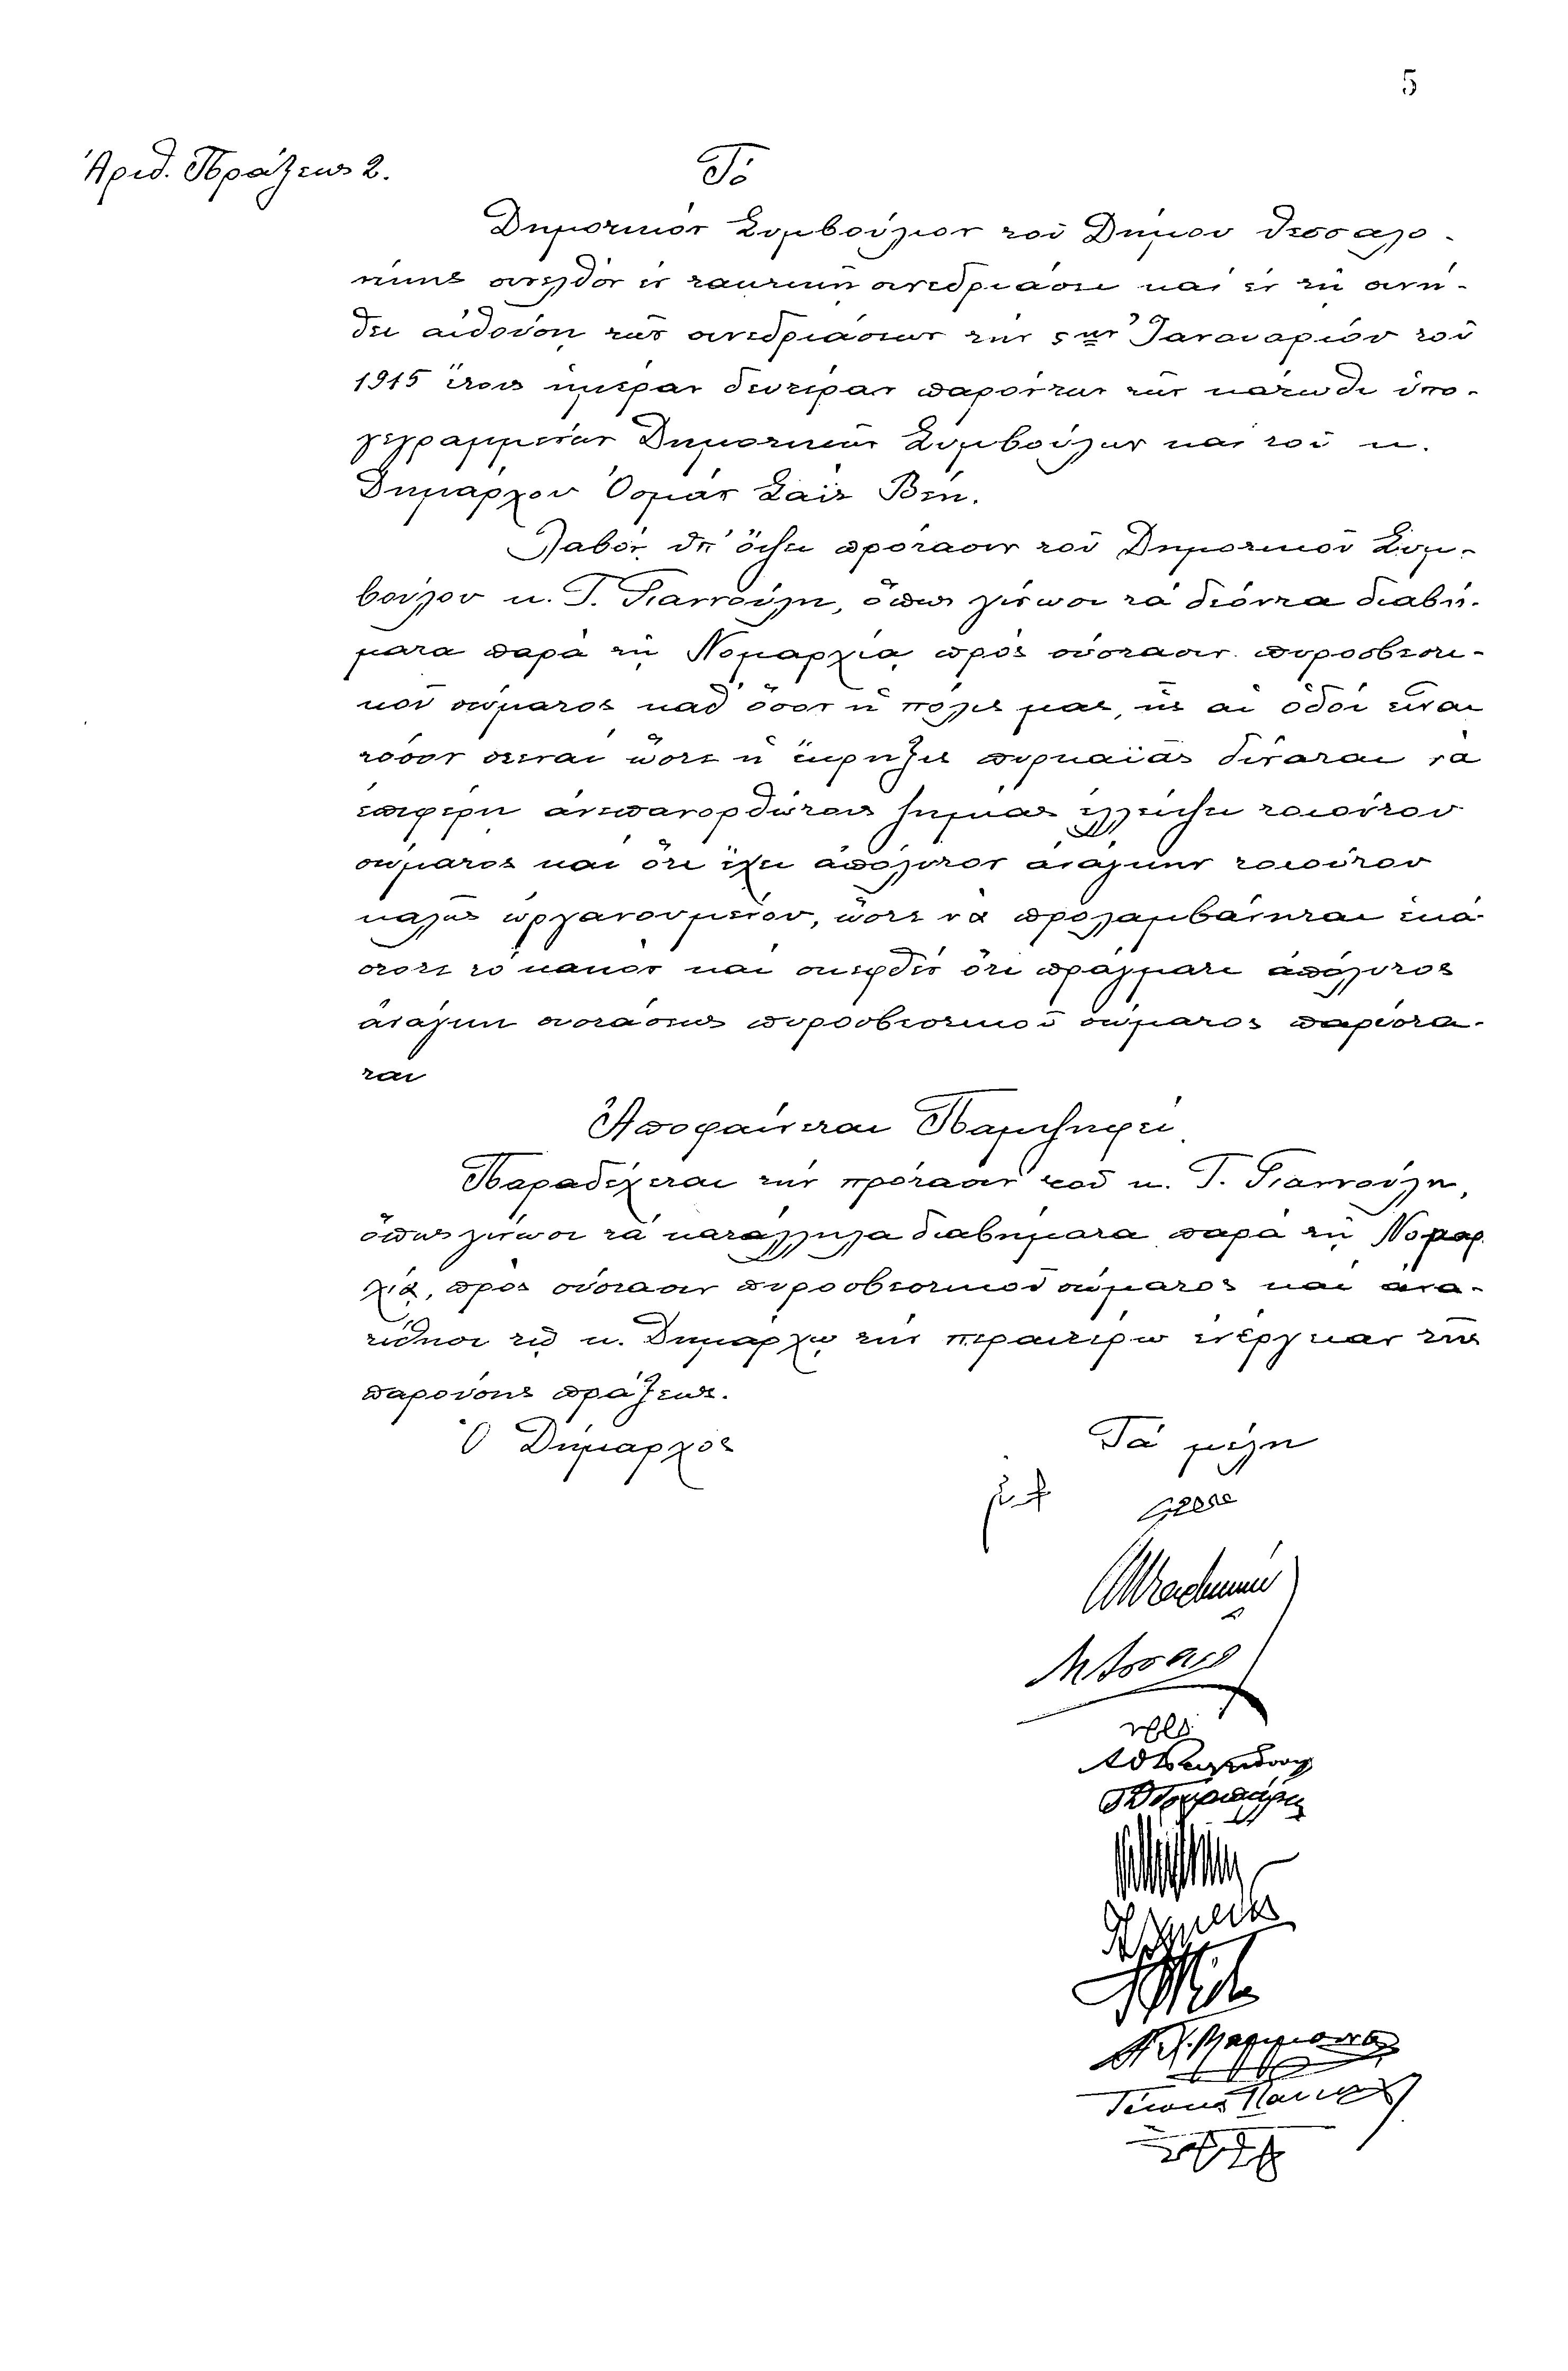 5
Ἀριθ. Πράξεως 2.
Τὸ
Δημοτικὸν Συμβούλιον τοῦ Δήμου Θεσσαλο-
νίκης συνελθὸν ἐν τακτικῇ συνεδριάσει καὶ ἐν τῇ συνή-
θει αἰθούσῃ τῶν συνεδριάσεων τὴν 5ην Ἰανουαρίου τοῦ
1915 ἔτους ἡμέραν δευτέραν παρόντων τῶν κάτωθι ὑπο-
γεγραμμένων Δημοτικῶν Συμβούλων καὶ τοῦ κ.
Δημάρχου Ὀσμὰν Σαὶτ Βέη.
Λαβὸν ὑπ' ὄψει πρότασιν τοῦ Δημοτικοῦ Συμ-
βούλου κ. Γ. Γιαννούλη, ὅπως γίνωσι τὰ δέοντα διαβή-
ματα παρὰ τῇ Νομαρχίᾳ πρὸς σύστασιν πυροσβεστι-
κοῦ σώματος καθ' ὅσον ἡ πόλις μας, ἧς αἱ ὁδοὶ εἶναι
τόσον στεναὶ ὥστε ἡ ἔκρηξις πυρκαϊᾶς δύναται νὰ
ἐπιφέρῃ ἀνεπανορθώτους ζημίας ἐλλείψει τοιούτου
σώματος καὶ ὅτι ἔχει ἀπόλυτον ἀνάγκην τοιούτου
καλῶς ὠργανουμένου, ὥστε νὰ προλαμβάνηται ἑκά-
στοτε τὸ κακὸν καὶ σκεφθὲν ὅτι πράγματι ἀπόλυτος
ἀνάγκη συστάσεως πυροσβεστικοῦ σώματος παρίστα-
ται
Ἀποφαίνεται Παμψηφεί
Παραδέχεται τὴν πρότασιν τοῦ κ. Γ. Γιαννούλη,
ὅπως γίνωσι τὰ κατάλληλα διαβήματα παρὰ τῇ Νομαρ-
χίᾳ, πρὸς σύστασιν πυροσβεστικοῦ σώματος καὶ ἀνα-
τίθησι τῷ κ. Δημάρχῳ τὴν περαιτέρω ἐνέργειαν τῆς
παρούσης πράξεως.
Ὁ Δήμαρχος
Τὰ μέλη